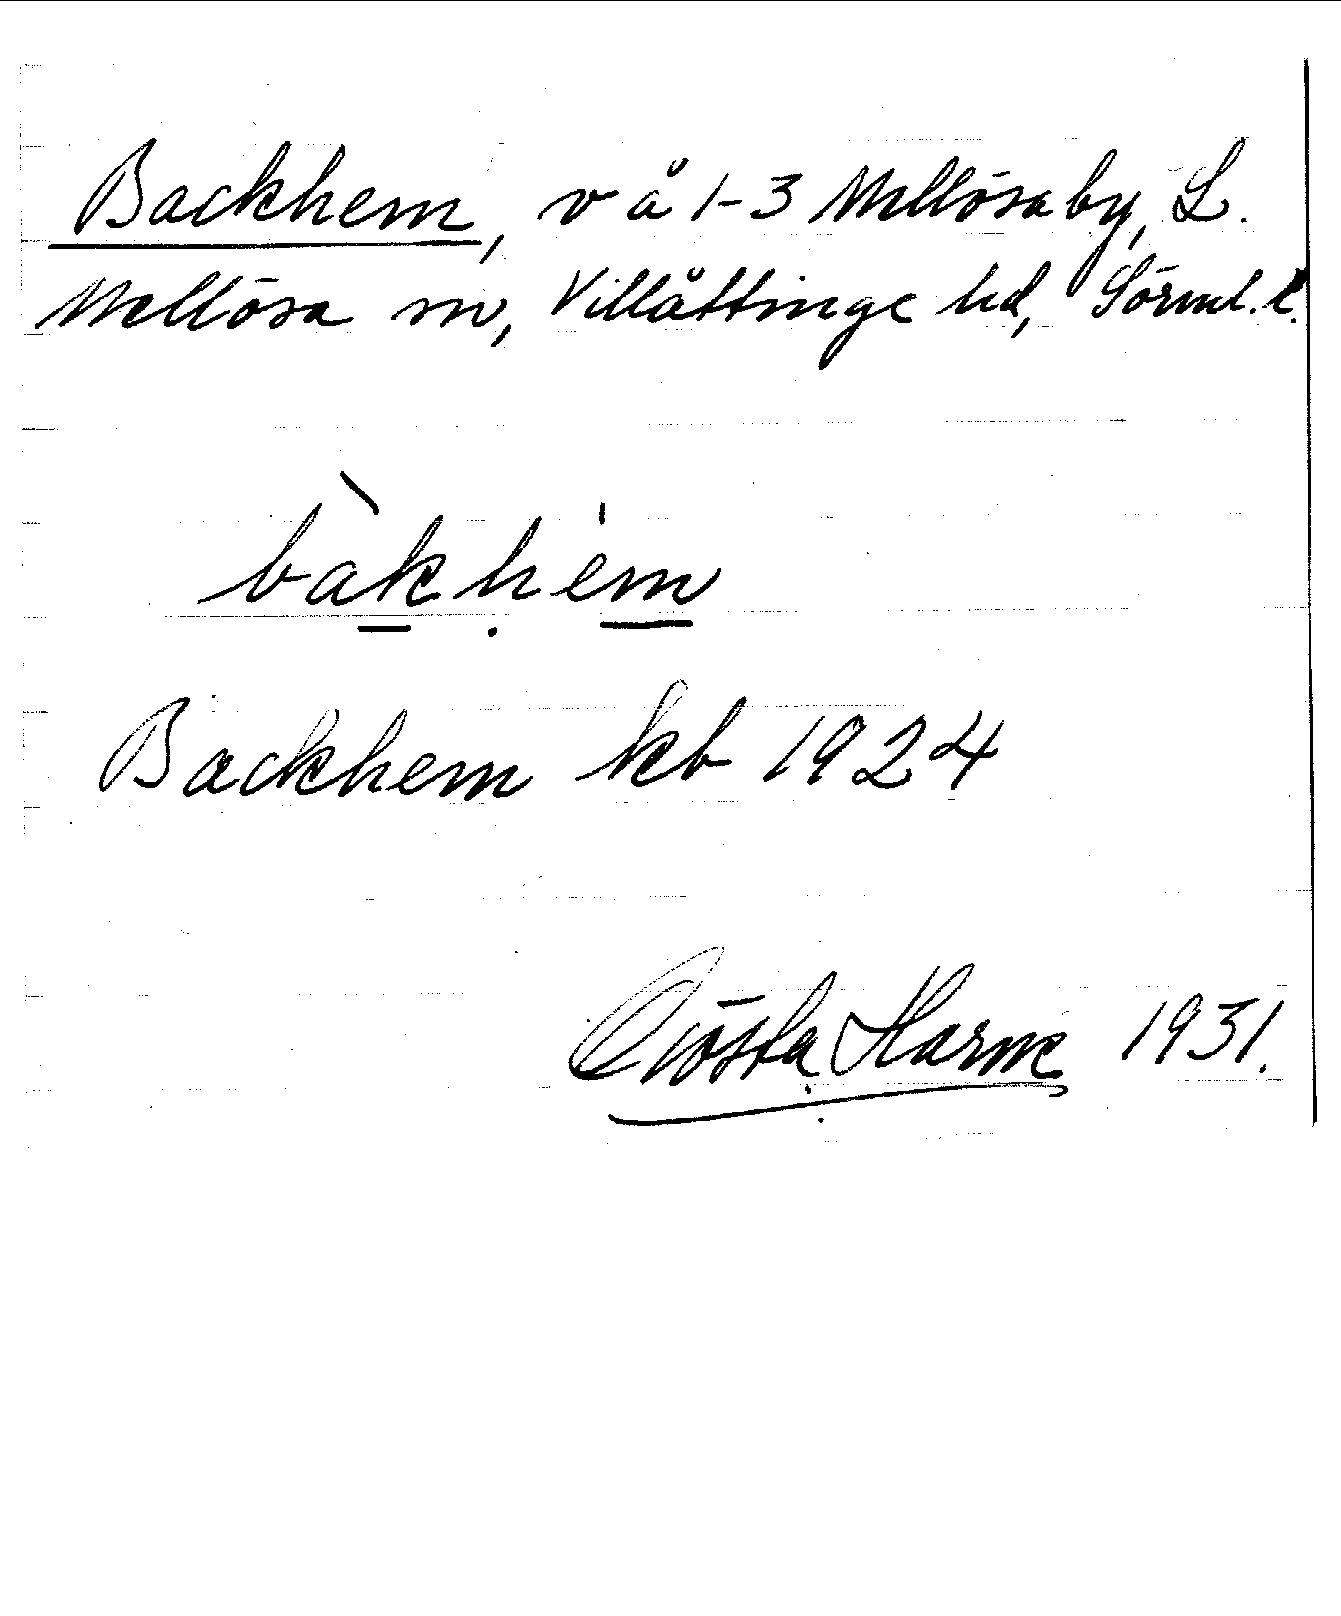 Backhem, v å 1-3 Mellösa by, L.
Mellösa sn, Villåttinge hd, Sörml. l.
bàkhem
Backhem kb 1924
Gösta Harne 1931.